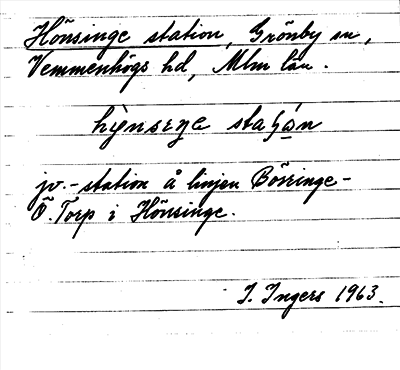 Hönsinge station, Grönby sn,
Vemmenhögs hd, Mlm län.
hỳnsɛŋe staʃón
jv.-station å linjen Börringe-
Ö. Torp i Hönsinge.
I. Ingers 1963.